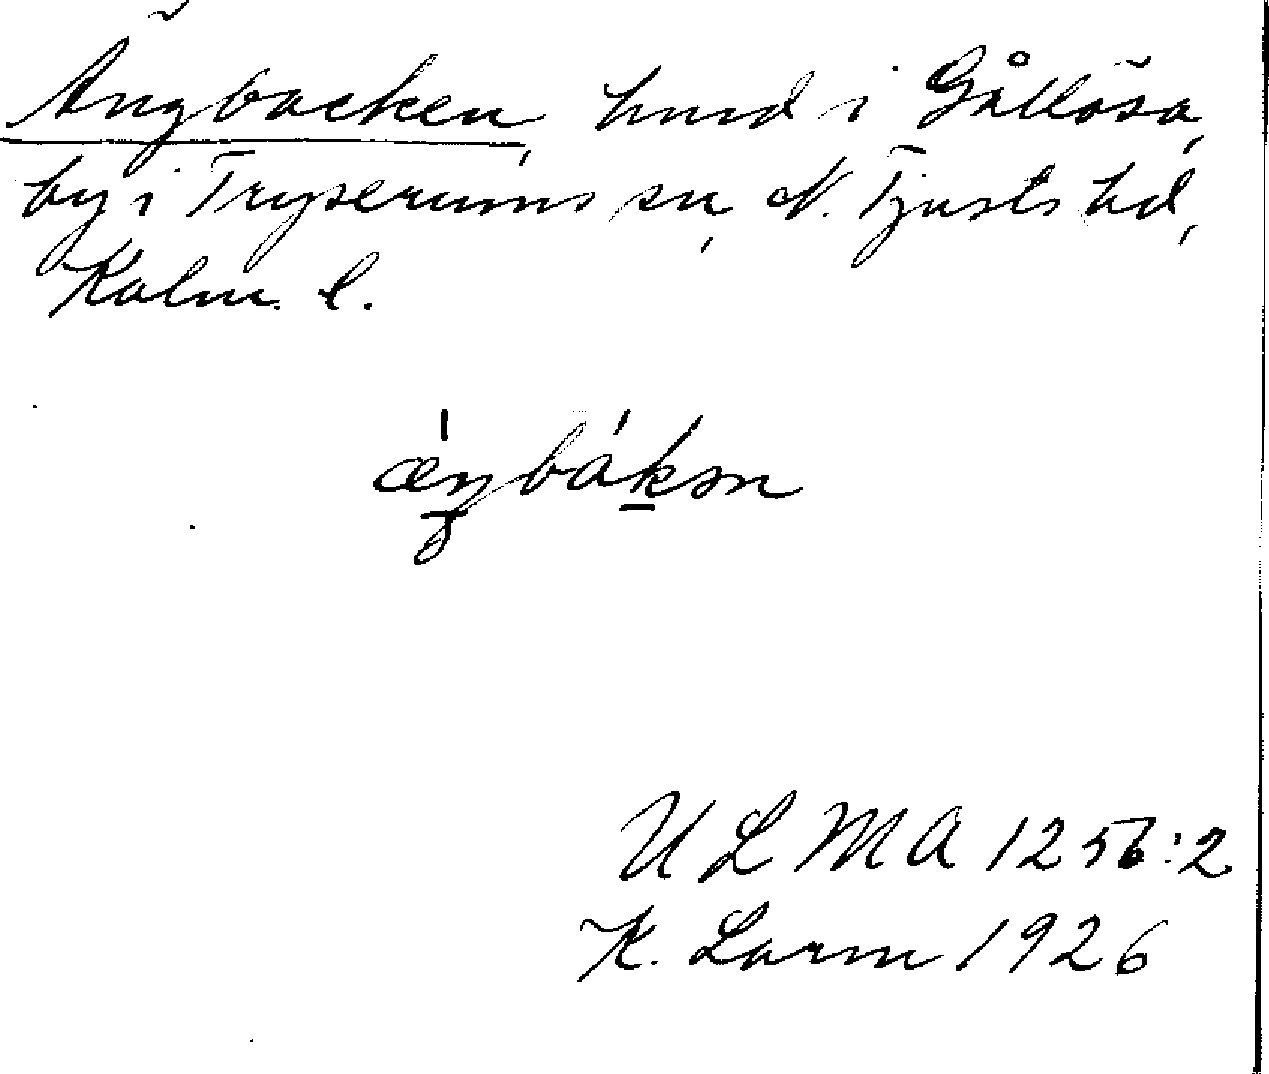 Ängbacken, hmd i Gållösa,
by i Tryserums sn, N. Tjusts hd,
Kalm. l.
æŋbákən
ULMA 1256:2
K. Larm 1926